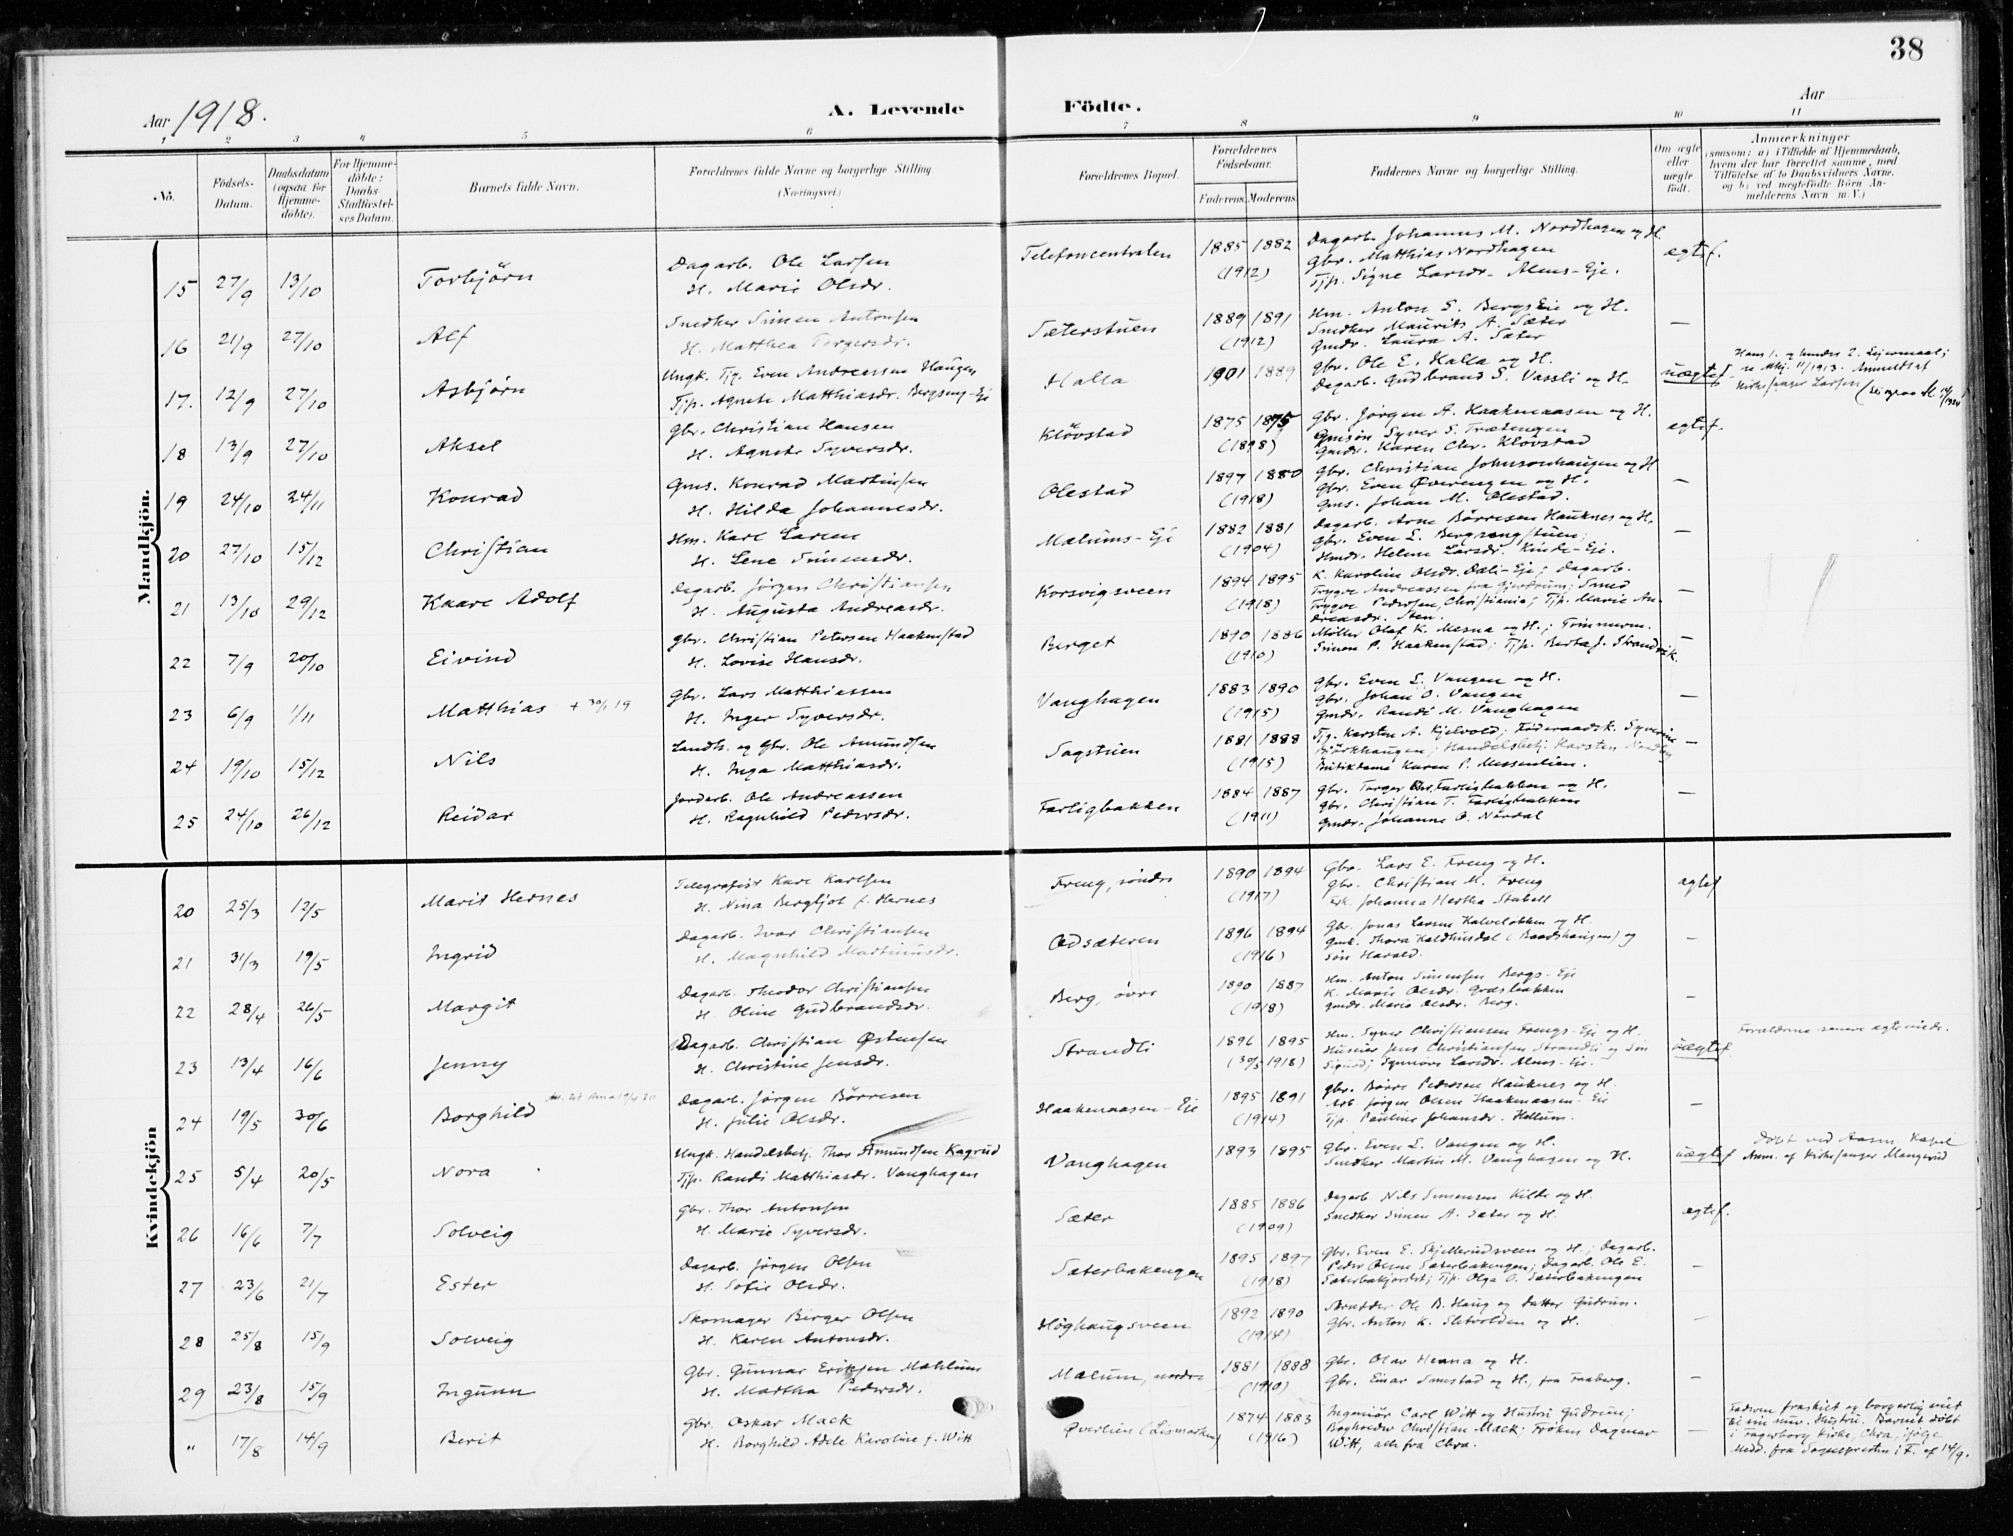 38
Aar 1918.
A. Levende Födte.
Aar
1 2 3 4 5 6 7 8 9 10 11
No.
Födsels-Datum.
Daabsdatum (ogsaa for Hjemme-döbte).
For Hjemme-döbte: Daabs-Stadfæstel-ses Datum.
Barnets fulde Navn.
Forældrenes fulde Navne og borgerlige Stilling (Næringsvei.)
Forældrenes Bopæl.
Forældrenes Födselsaar.
Faderens. Moderens.
Faddernes Navne og borgerlige Stilling.
Om ægte eller uægte födt.
Anmærkninger
(saasom: a) i Tilfælde af Hjemmedaab, hvem der har forrettet samme, med Tilföielse af to Daabsvidners Navne, og b) ved uegtefödte Börn An-melderens Navn m.V.)
Mandkjön.
15 27/9 13/10 Torbjørn Dagarb. Ole Larsen Telefoncentralen 1885 1882 Dagarb. Johannes M. Nordhagen og H. ægtef.
H. Marie Olsdr. (1912) Gbr. Matthias Nordhagen
Tjp. Signe Larsdr. Alms-Eje.
16 21/9 27/10 Alf Snedker Simen Antonsen Sæterstuen 1889 1891 Hm. Anton S. Bergs Eie og H. —
H. Matthea Torgersdr. (1912) Snedker Maurits A. Sæter
Gmdr. Laura A. Sæter
17. 12/9 27/10 Asbjørn Ungk. Tjg. Even Andreassen Haugen Halla 1901 1889 Gbr. Ole E. Halla og H. uægtef. Hans 1. og hendes 2. Lejermaal;
Tjp. Agnete Matthiasdr. Bergseng-Eje Dagarb. Gudbrand S. Vassli og H. 11/1913. Anmeldt af
Kirkesanger Larsen
18 13/9 27/10 Aksel Gbr. Christian Hansen Klövstad 1875 1875 Gbr. Jörgen A. Haakenaasen og H. ægtef.
H. Agnete Syversdr. (1898) Gmsøn Syver S. Trætengen
Gmdr. Karen Chr. Klövstad
19 24/10 24/11 Konrad Gms. Konrad Martinsen Olestad 1897 1880 Gbr. Christian Johnsonhaugen og H —
H. Hilda Johannesdr. (1918) Gbr. Even Øverengen og H.
Gms. Johan M. Olestad.
20 27/10 15/12 Christian Hm. Karl Larsen Mælums-Eje 1882 1881 Dagarb. Arne Børresen Hauknes og H. —
H. Lene Simensdr. (1904) Gbr. Even L. Bergsengstuen;
Hmdr. Helene Larsdr. Kinde-Eje.
21 13/10 29/12 Kaare Adolf Dagarb. Jörgen Christiansen Korsvigsveen 1894 1895 K. Karoline Olsdr. Dæli-Eje; Dagarb. —
H. Augusta Andreasdr. (1918) Trygve Andreassen fra Gjerdrum; Smed
Trygve Pedersen, Christiania; Tjp. Marie An-
dreasdr. Sten.
22 7/9 20/10 Eivind Gbr. Christian Petersen Haakenstad Berget 1890 1886 Møller Olaf K. Mesna og H.; Tømmerm. —
H. Lovise Hansdr. (1910) Simen P. Haakenstad; Tjp. Berta J. Strandvik.
23 6/9 1/11 Matthias + 30/1 19 Gbr. Lars Matthiassen Vanghagen 1883 1890 Gbr. Even L. Vangen og H. —
H. Inger Syversdr. (1915) Gbr. Johan O. Vangen
Gmdr. Randi M. Vanghagen
24 19/10 15/12 Nils Landh. og Gbr. Ole Amundsen Sagstuen 1881 1888 Tjg. Karsten A. Kjelvold; Føderaadsk. Syverine —
H. Inga Matthiasdr. (1915) Björkhaugen; Handelsbetj. Karsten Nordby
Butikdame Karen P. Messenlien.
25 24/10 26/12 Reidar Jordarb. Ole Andreassen Farligbakken 1884 1887 Gbr. Torger Chr. Farligbakken og H. —
H. Ragnhild Pedersdr. (1911) Gbr. Christian T. Farligbakken
Gmdr. Johanne O. Nordal
Kvindekjön
20 25/3 12/5 Marit Hernes Telegrafist Kare Karlsen Freng, söndre 1890 1894 Gbr. Lars E. Freng og H. ægtef
H. Nina Bergljot f. Hernes (1917) Gbr. Christian M. Freng
Frk. Johanna Hertha Stabell
21 31/3 19/5 Ingrid Dagarb. Ivar Christiansen Odsæteren 1896 1894 Gbr. Jonas Larsen Kalveløkken og H. —
H. Magnhild Martinusdr. (1916) Gmk. Thora Kaldhusdal (Baadshaugen) og
Søn Harald.
22 28/4 26/5 Margit Dagarb. Theodor Christiansen Berg, övre 1890 1887 Hm. Anton Simensen Bergs-Eje —
H. Oline Gudbrandsdr. (1918) K. Marie Olsdr. Godsbakken
Gmdr. Marie Olsdr. Berg.
23 13/4 16/6 Jenny Dagarb. Christian Østensen Strandli 1896 1895 Hm. Syver Christiansen Frengs-Eje og H. uægtef. Forældrene senere ægteviede.
H. Christine Jensdr. (30/5 1918) Husmd. Jens Christiansen Strandli og Søn
Sigurd; Synnøve Larsdr. Alms-Eje.
24 19/5 30/6 Borghild Dagarb. Jörgen Börresen Haakenaasen-Eje 1895 1891 Gbr. Börre Pedersen Hauknes og H. —
H. Julie Olsdr. (1914) Arb. Jörgen Olsen Haakenaasen-Eie
Tjp. Pauline Johansdr. Hellum.
25 5/4 20/5 Nora Ungk. Handelsbetj. Thor Amundsen Kagrud Vanghagen 1893 1895 Gbr. Even L. Vangen og H. uægtef Döbt ved Aasm. Kapel
Tjp. Randi Matthiasdr. Vanghagen Snedker Martin M. Vanghagen og H. Anm. af Kirkesanger Mangerud
26 16/6 7/7 Solveig Gbr. Thor Antonsen Sæter 1885 1886 Dagarb. Nils Simensen Kilde og H. ægtef.
H. Marie Syversdr. (1909) Snedker Simen A. Sæter og H.
27 23/6 21/7 Ester Dagarb. Jörgen Olsen Sæterbakengen 1895 1897 Gbr. Even E. Skjellerudsveen og H.; Dagarb. —
H. Sofie Olsdr. (1918) Peder Olsen Sæterbakengen; Dagarb. Ole E.
Sæterbakjordet; Tjp. Olga O. Sæterbakengen
28 25/8 15/9 Solveig Skomager Berger Olsen Höghaugsveen 1892 1890 Skrædder Ole B. Haug og Datter Gudrun. —
H. Karen Antonsdr. (1914) Gbr. Anton K. Sletvolden og H.
29 23/8 15/9 Ingunn Gbr. Gunnar Eriksen Mæhlum Mælum, nordre 1881 1888 Gbr. Olav Henna og H. —
H. Martha Pedersdr. (1910) Gbr. Einar Samstad og H., fra Faaberg.
" 17/8 14/9 Berit Gbr. Oskar Mack Øverlien (Lismarken) 1874 1883 Ingeniør Carl Witt og Hustru Gudrun; — Faderen fraskilt og borgerlig viet
H. Borghild Adele Karoline f. Witt (1916) Bogholder Christian Mack; Frøken Dagmar til sin nuv. Hustru. Barnet döbt
Witt, alle fra Chra. i Fagerborg Kirke, Chra, ifølge
Medd. fra Sognepresten i F. af 14/9.